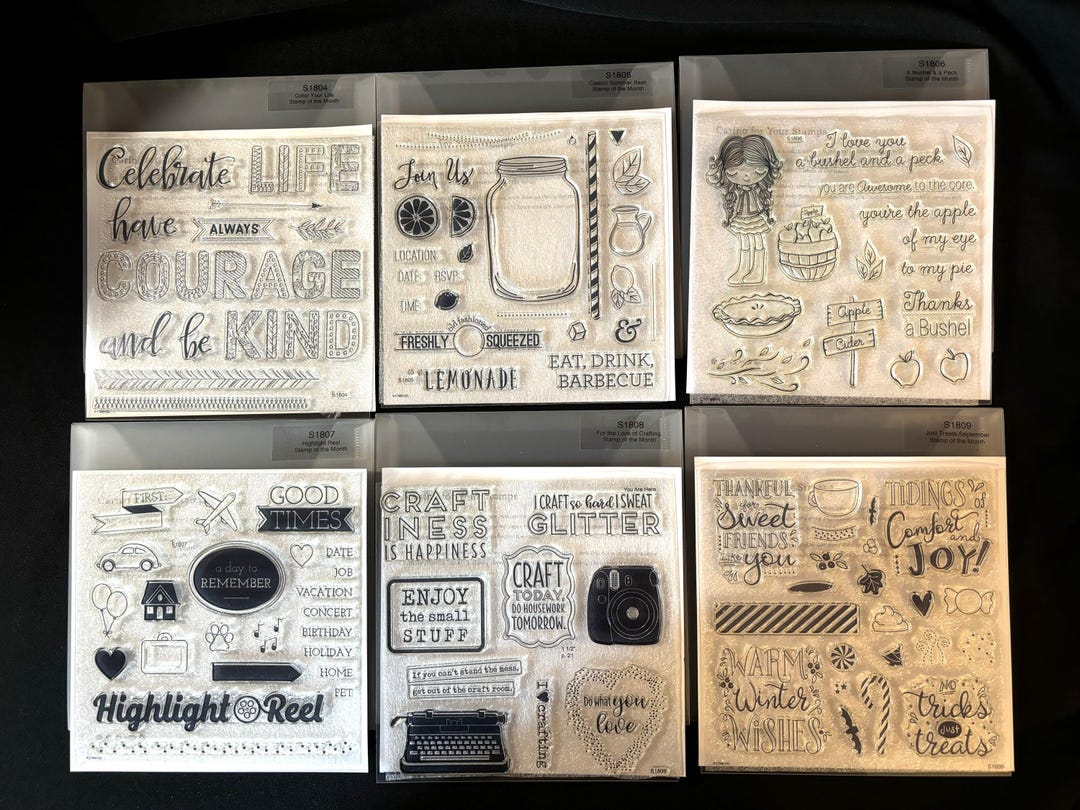 S1804
Color Your Life
Stamp of the Month
Celebrate LIFE
have ALWAYS
COURAGE
and be KIND
S1804
S1805
Classic Summer Bash
Stamp of the Month
Join Us
LOCATION:
DATE: RSVP:
TIME:
old fashioned
FRESHLY SQUEEZED
LEMONADE
&
EAT, DRINK,
BARBECUE
S1805
S1806
A Bushel & a Peck
Stamp of the Month
Caring for Your Stamps
S1806
I love you
a bushel and a peck
you are Awesome to the core.
you're the apple
of my eye
to my pie
Apple
Apple
Cider
Thanks
a Bushel
S1807
Highlight Reel
Stamp of the Month
FIRST:
GOOD
TIMES
S1807
a day to
REMEMBER
DATE
JOB
VACATION
CONCERT
BIRTHDAY
HOLIDAY
HOME
PET
Highlight Reel
S1808
For the Love of Crafting
Stamp of the Month
You Are Here
CRAFT
INESS
IS HAPPINESS
I CRAFT so hard I SWEAT
GLITTER
ENJOY
the small
STUFF
CRAFT
TODAY,
DO HOUSEWORK
TOMORROW.
1 1/2"
p. 21
If you can't stand the mess,
get out of the craft room.
I ♥ crafting
Do what you
love
S1808
S1809
Just Treats-September
Stamp of the Month
THANKFUL
for
Sweet
FRIENDS
Like
you
TIDINGS of
Comfort
and
JOY!
WARM
Winter
WISHES
NO
tricks
just
treats
S1809